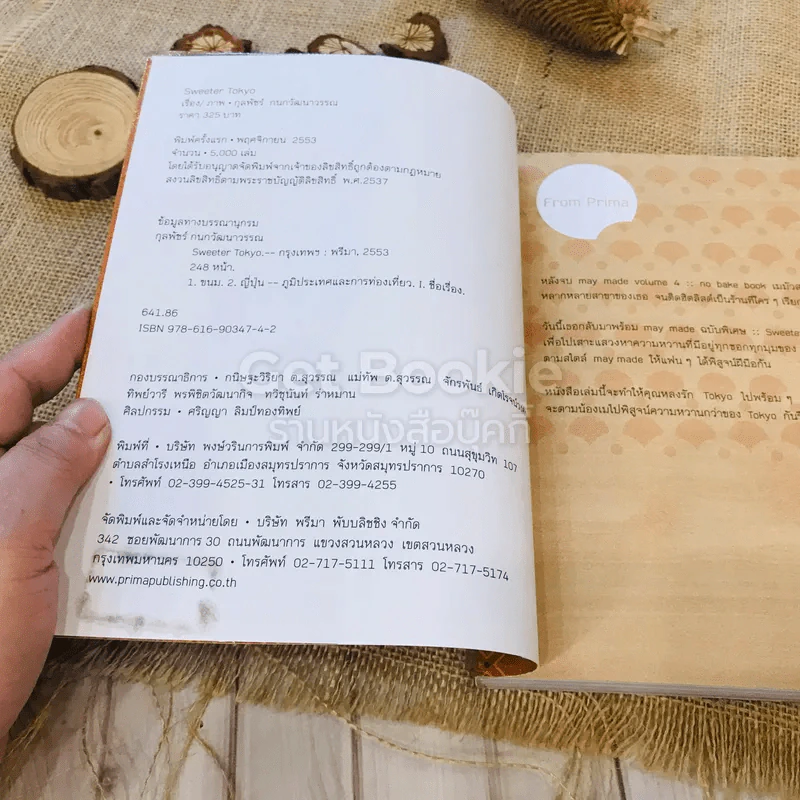 Sweeter Tokyo
เรื่อง/ ภาพ • กุลพัชร์ กนกวัฒนาวรรณ
ราคา 325 บาท
พิมพ์ครั้งแรก • พฤศจิกายน 2553
จำนวน • 5,000 เล่ม
โดยได้รับอนุญาตจัดพิมพ์จากเจ้าของลิขสิทธิ์ถูกต้องตามกฎหมาย
สงวนลิขสิทธิ์ตามพระราชบัญญัติลิขสิทธิ์ พ.ศ.2537
ข้อมูลทางบรรณานุกรม
กุลพัชร์ กนกวัฒนาวรรณ
Sweeter Tokyo.-- กรุงเทพฯ : พรีมา, 2553
248 หน้า.
1. ขนม. 2. ญี่ปุ่น -- ภูมิประเทศและการท่องเที่ยว. I. ชื่อเรื่อง.
641.86
ISBN 978-616-90347-4-2
กองบรรณาธิการ • กนิษฐะวิริยา ต.สุวรรณ แม่ทัพ ต.สุวรรณ จักรพันธ์
ทิพย์วารี พรพิชิตวัฒนากิจ ทวิชุนันท์ ร่าหมาน
ศิลปกรรม • ศริญญา ลิมป์ทองทิพย์
พิมพ์ที่ • บริษัท พงษ์วรินการพิมพ์ จำกัด 299-299/1 หมู่ 10 ถนนสุขุมวิท 107
ตำบลสำโรงเหนือ อำเภอเมืองสมุทรปราการ จังหวัดสมุทรปราการ 10270
• โทรศัพท์ 02-399-4525-31 โทรสาร 02-399-4255
จัดพิมพ์และจัดจำหน่ายโดย • บริษัท พรีมา พับบลิชชิง จำกัด
342 ซอยพัฒนาการ 30 ถนนพัฒนาการ แขวงสวนหลวง เขตสวนหลวง
กรุงเทพมหานคร 10250 • โทรศัพท์ 02-717-5111 โทรสาร 02-717-5174
www.primapublishing.co.th
From Prima
หลังจบ may made volume 4 :: no bake book เมบัวส
หลากหลายสาขาของเธอ จนติดฮิตลิสต์เป็นร้านที่ใคร ๆ เรีย
วันนี้เธอกลับมาพร้อม may made ฉบับพิเศษ :: Sweete
เพื่อไปเสาะแสวงหาความหวานที่มีอยู่ทุกซอกทุกมุมของ
ตามสไตล์ may made ให้แฟน ๆ ได้พิสูจน์ฝีมือกัน
หนังสือเล่มนี้จะทำให้คุณหลงรัก Tokyo ไปพร้อม ๆ
จะตามน้องเมไปพิสูจน์ความหวานกว่าของ Tokyo กัน
Got Bookie
ร้านหนังสือบุ๊คกี้